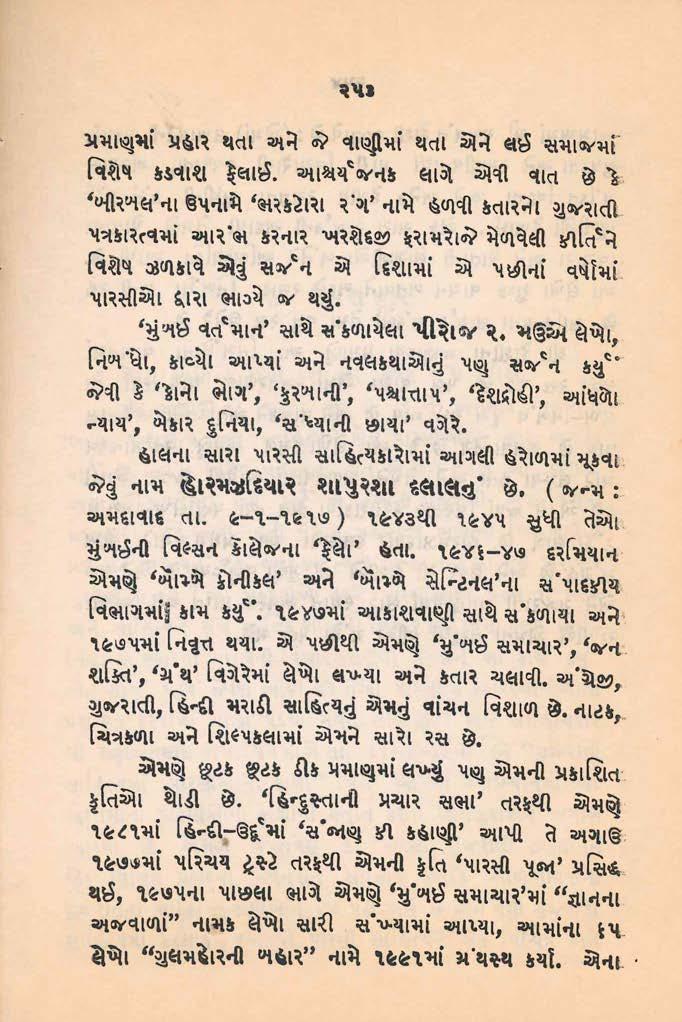 ૨૫૩
પ્રમાણમાં પ્રહાર થતા અને જે વાણીમાં થતા એને લઈ સમાજમાં
વિશેષ કડવાશ ફેલાઈ. આશ્ચર્યજનક લાગે એવી વાત છે કે
‘બીરબલ’ના ઉપનામે ‘ભરકટારા રંગ’ નામે હળવી કતારનો ગુજરાતી
પત્રકારત્વમાં આરંભ કરનાર ખરશેદજી ફરામરોજે મેળવેલી કીર્તિને
વિશેષ ઝળકાવે એવું સર્જન એ દિશામાં એ પછીનાં વર્ષોમાં
પારસીઓ દ્વારા ભાગ્યે જ થયું.
‘મુંબઈ વર્તમાન’ સાથે સંકળાયેલા પીરોજ ર. મઉએ લેખો,
નિબંધો, કાવ્યો આપ્યાં અને નવલકથાઓનું પણ સર્જન કર્યું
જેવી કે ‘કોનો ભોગ’, ‘કુરબાની’, ‘પશ્ચાત્તાપ’, ‘દેશદ્રોહી’, આંધળો
ન્યાય’, બેકાર દુનિયા, ‘સંધ્યાની છાયા’ વગેરે.
હાલના સારા પારસી સાહિત્યકારોમાં આગલી હરોળમાં મૂકવા
જેવું નામ હોરમઝદિયાર શાપુરશા દલાલનું છે. ( જન્મ :
અમદાવાદ તા. ૯–૧–૧૯૧૭ ) ૧૯૪૩થી ૧૯૪૫ સુધી તેઓ
મુંબઈની વિલ્સન કૉલેજના ‘ફેલો’ હતા. ૧૯૪૬–૪૭ દરમિયાન
એમણે ‘બૉમ્બે ક્રોનીકલ’ અને ‘બૉમ્બે સેન્ટિનલ’ના સંપાદકીય
વિભાગમાં કામ કર્યું. ૧૯૪૭માં આકાશવાણી સાથે સંકળાયા અને
૧૯૭૫માં નિવૃત્ત થયા. એ પછીથી એમણે ‘મુંબઈ સમાચાર’, ‘જન
શક્તિ’, ‘ગ્રંથ’ વિગેરેમાં લેખો લખ્યા અને કતાર ચલાવી. અંગ્રેજી,
ગુજરાતી, હિન્દી મરાઠી સાહિત્યનું એમનું વાંચન વિશાળ છે. નાટક,
ચિત્રકળા અને શિલ્પકલામાં એમને સારો રસ છે.
એમણે છૂટક છૂટક ઠીક પ્રમાણમાં લખ્યું પણ એમની પ્રકાશિત
કૃતિઓ થોડી છે. ‘હિન્દુસ્તાની પ્રચાર સભા’ તરફથી એમણે
૧૯૮૧માં હિન્દી–ઉર્દૂમાં ‘સંજાણ કી કહાણી’ આપી તે અગાઉ
૧૯૭૭માં પરિચય ટ્રસ્ટે તરફથી એમની કૃતિ ‘પારસી પૂજા’ પ્રસિદ્ધ
થઈ, ૧૯૭૫ના પાછલા ભાગે એમણે ‘મુંબઈ સમાચાર’માં “જ્ઞાનના
અજવાળાં” નામક લેખો સારી સંખ્યામાં આપ્યા, આમાંના ૬૫
લેખો “ગુલમહોરની બહાર” નામે ૧૯૯૧માં ગ્રંથસ્થ કર્યા. એના